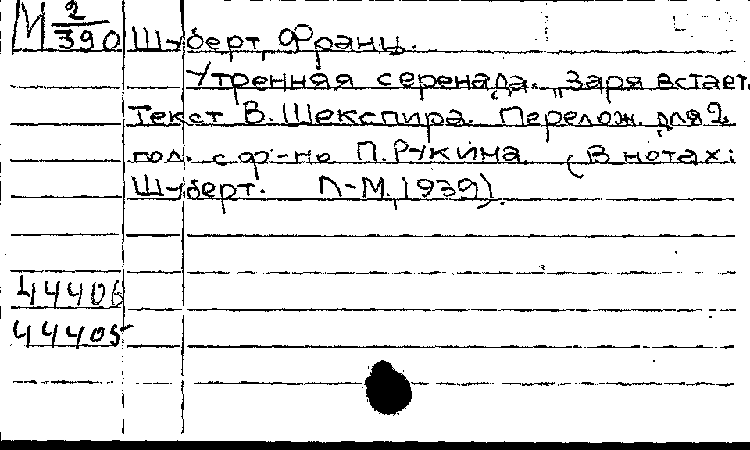 М 2/390 Шуберт, Франц.
Утренняя серенада. „Заря встает.
Текст В. Шекспира. Перелож. для 2
гол. с ф-но П. Рукина. (В нотах:
Шуберт. Л-М, 1939).
44406
44405